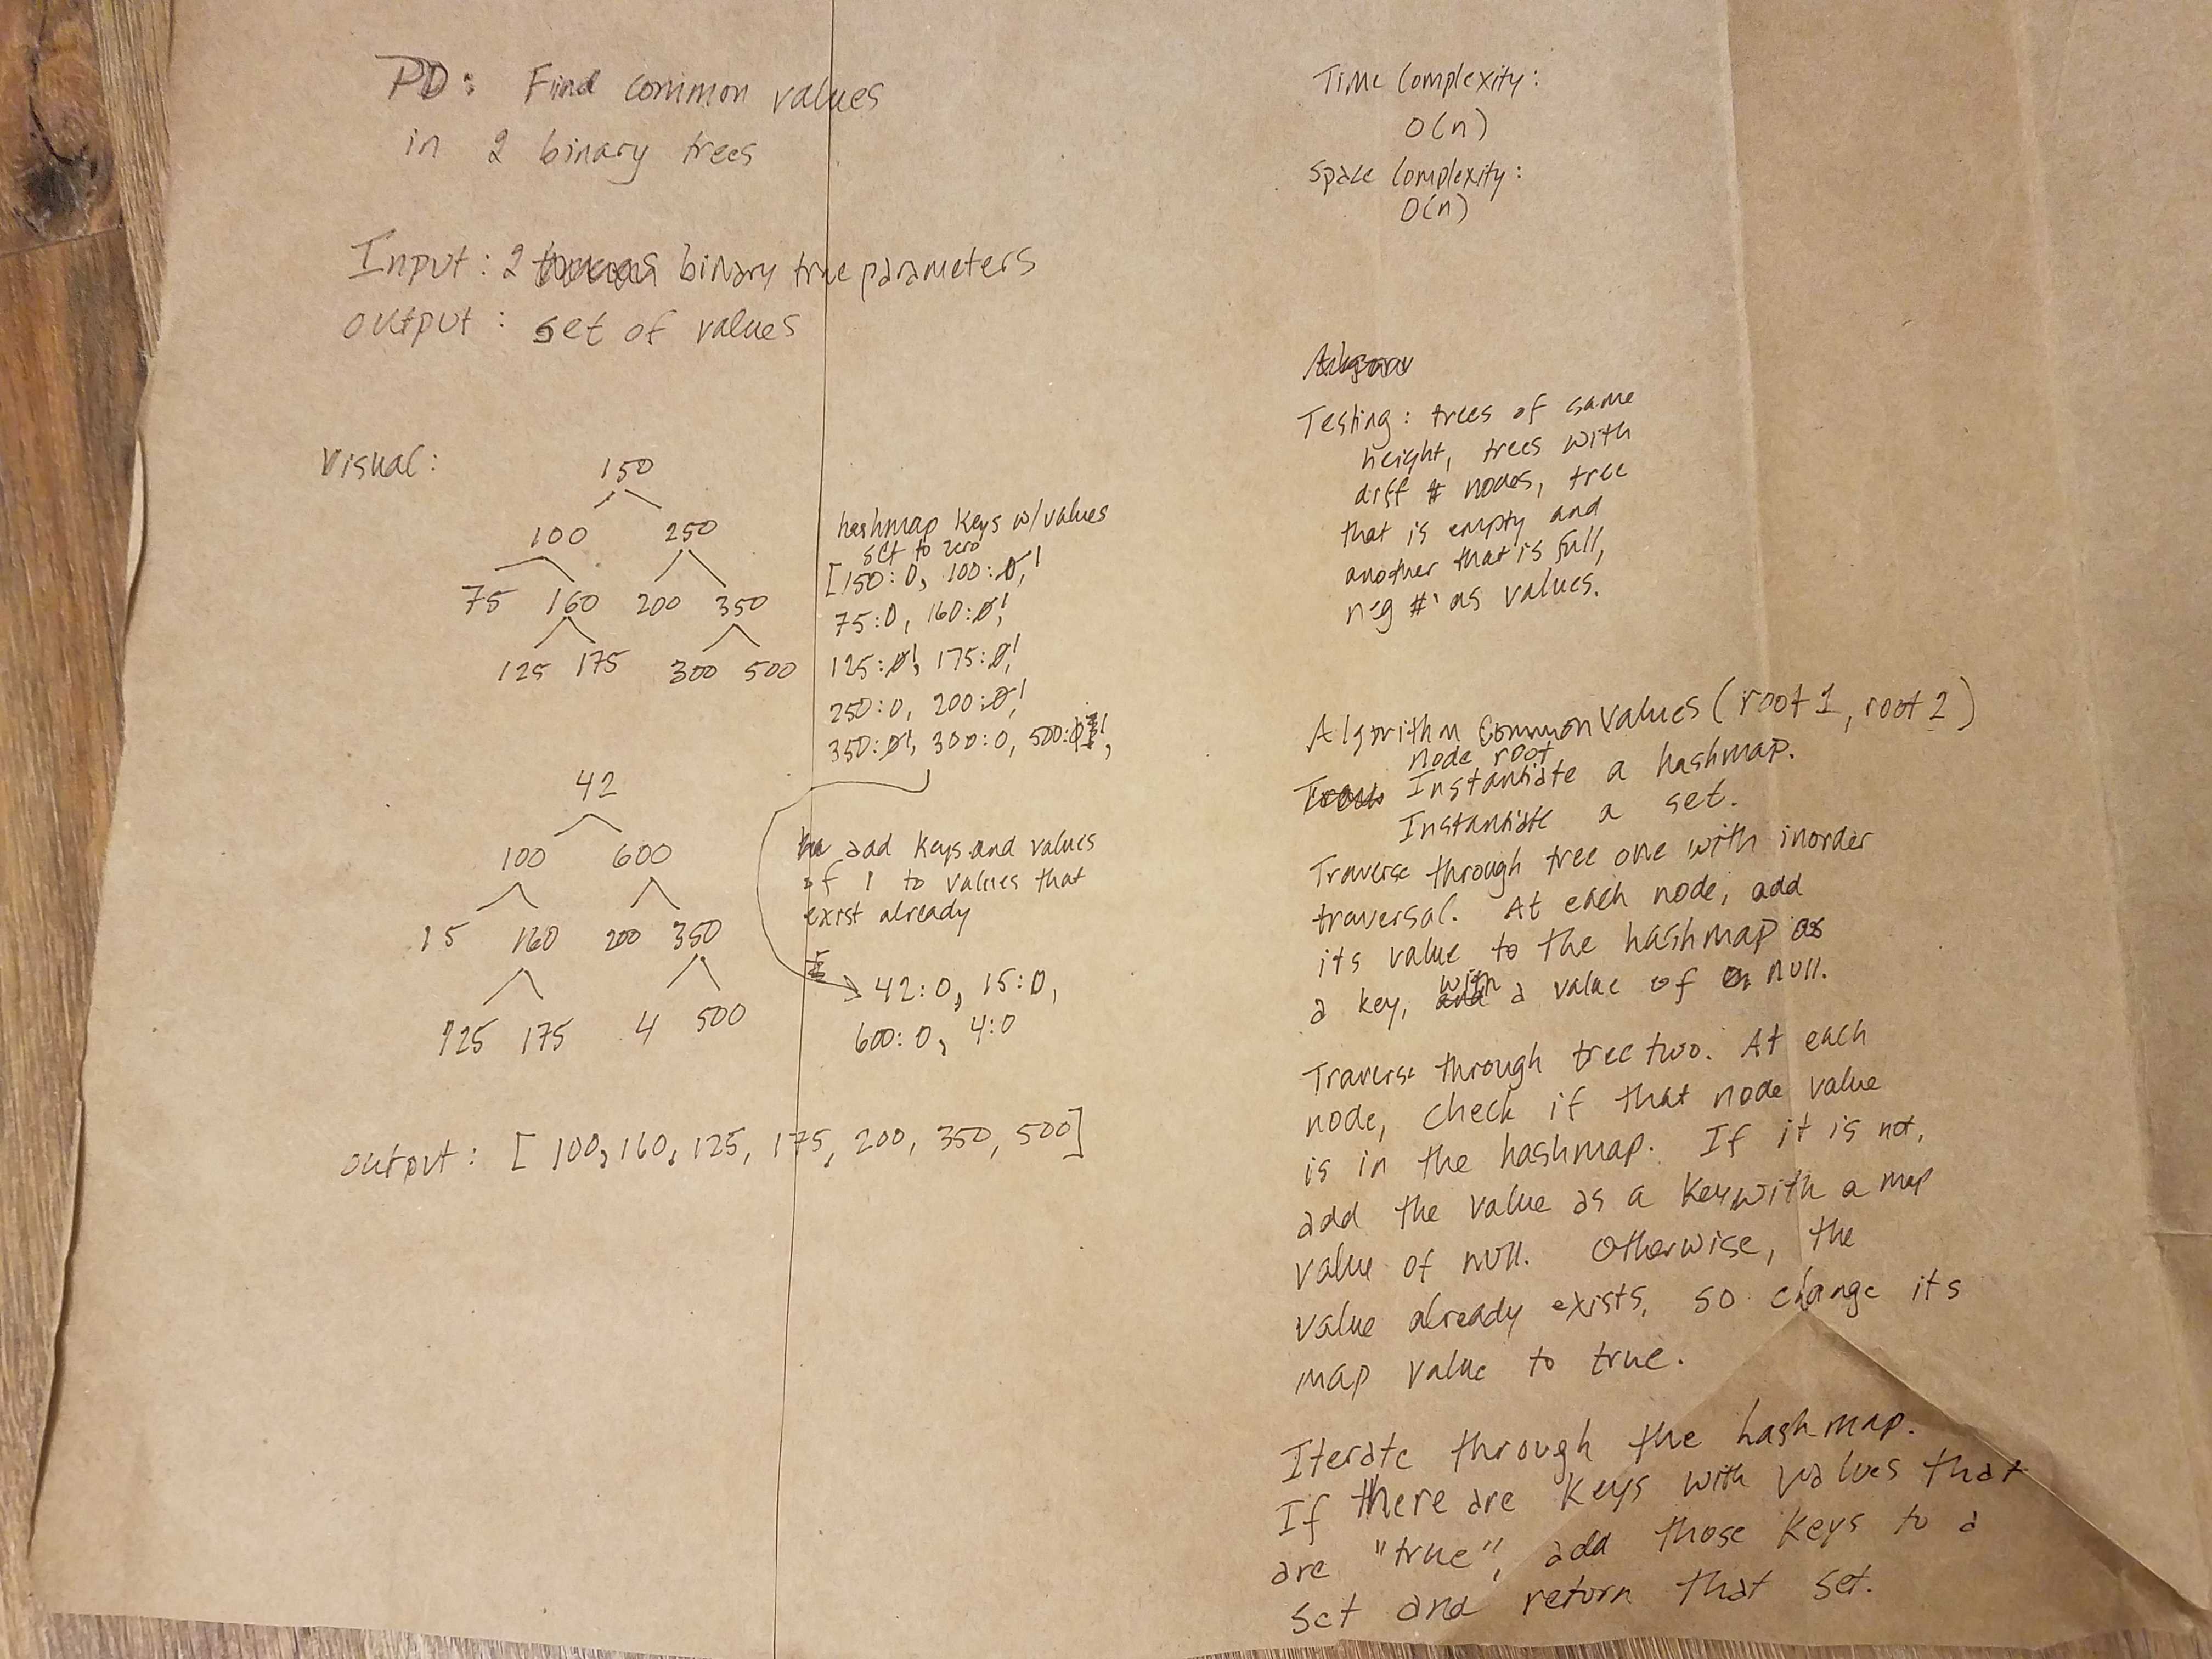 PD: Find common values
in 2 binary trees
Input: 2 binary tree parameters
output: set of values
Visual:
150
100 250
75 160 200 350
125 175 300 500
hashmap keys w/values
set to zero
[150:0, 100:0,1
75:0, 160:0,1
125:0,1 175:0,1
250:0, 200:0,1
350:0,1 300:0, 500:0 1,
42
100 600
15 160 200 350
125 175 4 500
add keys and values
of 1 to values that
exist already
42:0, 15:0,
600:0, 4:0
output: [100, 160, 125, 175, 200, 350, 500]
Time Complexity:
O(n)
Space Complexity:
O(n)
Testing: trees of same
height, trees with
diff # nodes, tree
that is empty and
another that is full,
neg #' as values.
Algorithm CommonValues(root1, root2)
node root
Instantiate a hashmap.
Instantiate a set.
Traverse through tree one with inorder
traversal. At each node, add
its value to the hashmap as
a key, with a value of null.
Traverse through tree two. At each
node, check if that node value
is in the hashmap. If it is not,
add the value as a key with a map
value of null. Otherwise, the
value already exists, so change its
map value to true.
Iterate through the hashmap.
If there are keys with values that
are "true", add those keys to a
set and return that set.